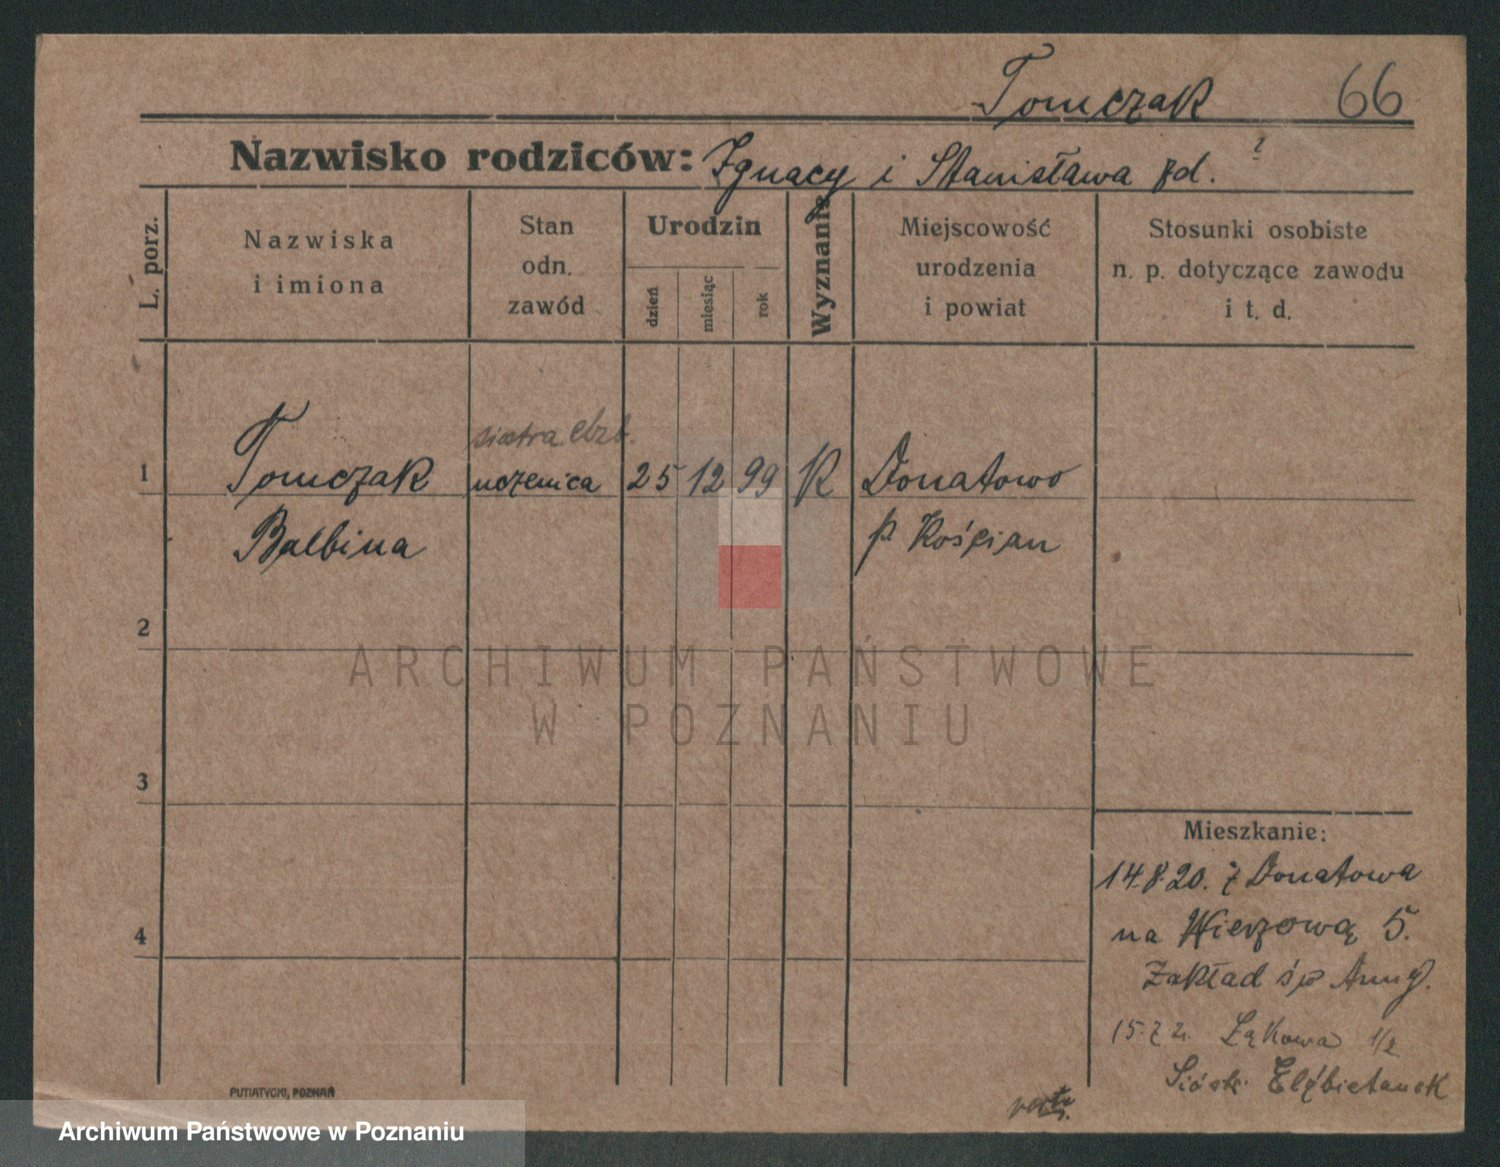 Tomczak 66
Nazwisko rodziców: Ignacy i Stanisława zd. ?
L. porz.
Nazwiska
i imiona
Stan
odn.
zawód
Urodzin
dzień
miesiąc
rok
Wyznanie
Miejscowość
urodzenia
i powiat
Stosunki osobiste
n. p. dotyczące zawodu
i t. d.
siostra Elzb.
1 Tomczak uczenica 25 12 99 K Donatowo
Balbina p. Kościan
2
3
4
Mieszkanie:
14.8.20. z Donatowa
na Wieżową 5.
Zakład św
Łąkowa 1/2
Sióstr Elżbietanek
PUTIATYCKI, POZNAŃ
ARCHIWUM PAŃSTWOWE
W POZNANIU
Archiwum Państwowe w Poznaniu